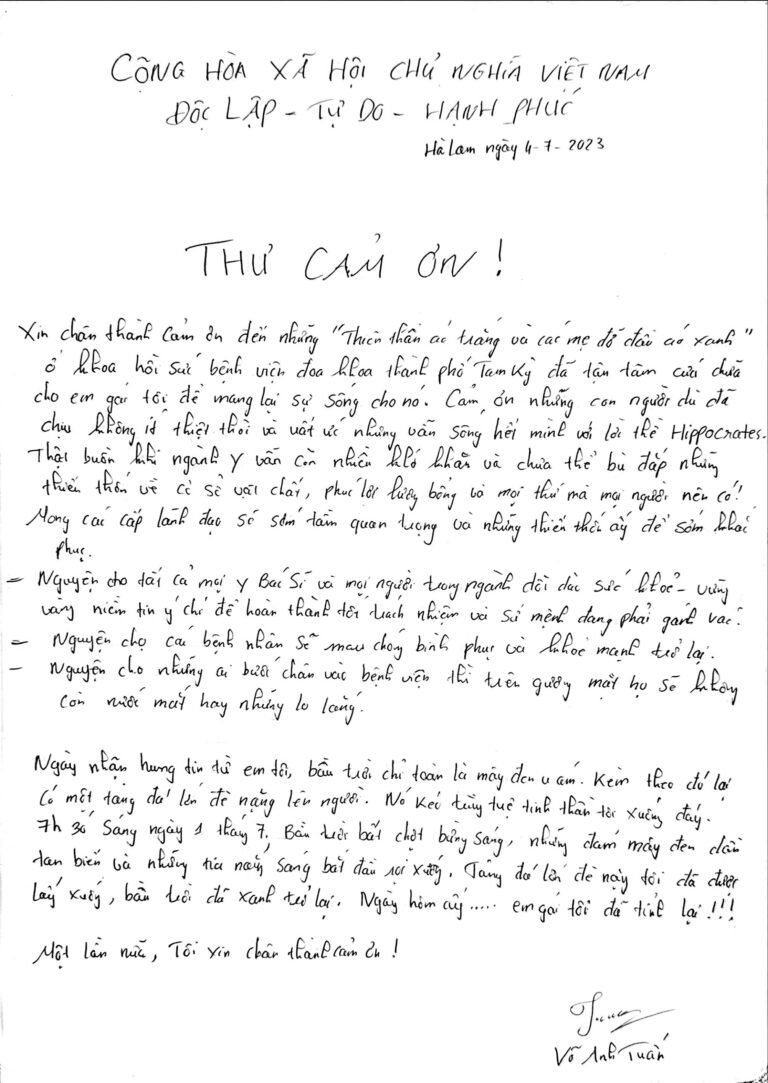 CỘNG HÒA XÃ HỘI CHỦ NGHĨA VIỆT NAM
ĐỘC LẬP - TỰ DO - HẠNH PHÚC
Hà Lam ngày 4-7-2023
THƯ CẢM ƠN!
Xin chân thành cảm ơn đến những "Thiên thần áo trắng và các mẹ đỡ đầu áo xanh"
ở khoa hồi sức bệnh viện đa khoa thành phố Tam Kỳ đã tận tâm cứu chữa
cho em gái tôi để mang lại sự sống cho nó. Cảm ơn những con người dù đã
chịu không ít thiệt thòi và uất ức nhưng vẫn sống hết mình với lời thề Hippocrates.
Thật buồn khi ngành y vẫn còn nhiều khó khăn và chưa thể bù đắp những
thiếu thốn về cơ sở vật chất, phúc lợi lương bổng và mọi thứ mà mọi người nên có!
Mong các cấp lãnh đạo sẽ sớm tầm quan trọng và những thiếu thốn ấy để sớm khắc
phục.
- Nguyện cho tất cả mọi y Bác Sĩ và mọi người trong ngành dồi dào sức khoẻ - vững
vàng niềm tin ý chí để hoàn thành tốt trách nhiệm và sứ mệnh đang phải gánh vác.
- Nguyện cho các bệnh nhân sẽ mau chóng bình phục và khoẻ mạnh trở lại.
- Nguyện cho những ai bước chân vào bệnh viện thì trên gương mặt họ sẽ không
còn nước mắt hay những lo lắng.
Ngày nhận hung tin từ em tôi, bầu trời chỉ toàn là mây đen u ám. Kèm theo đó lại
có một tảng đá lớn đè nặng lên người. Nó kéo tuỳ tuệ tinh thần tôi xuống đáy.
7h 30 sáng ngày 1 tháng 7. Bầu trời bất chợt bừng sáng, những đám mây đen dần
tan biến và những tia nắng sáng bắt đầu rọi xuống. Tảng đá lớn đè này tôi đã được
lấy xuống, bầu trời đã xanh trở lại. Ngày hôm ấy..... em gái tôi đã tỉnh lại!!!
Một lần nữa, Tôi xin chân thành cảm ơn!
Võ Anh Tuấn